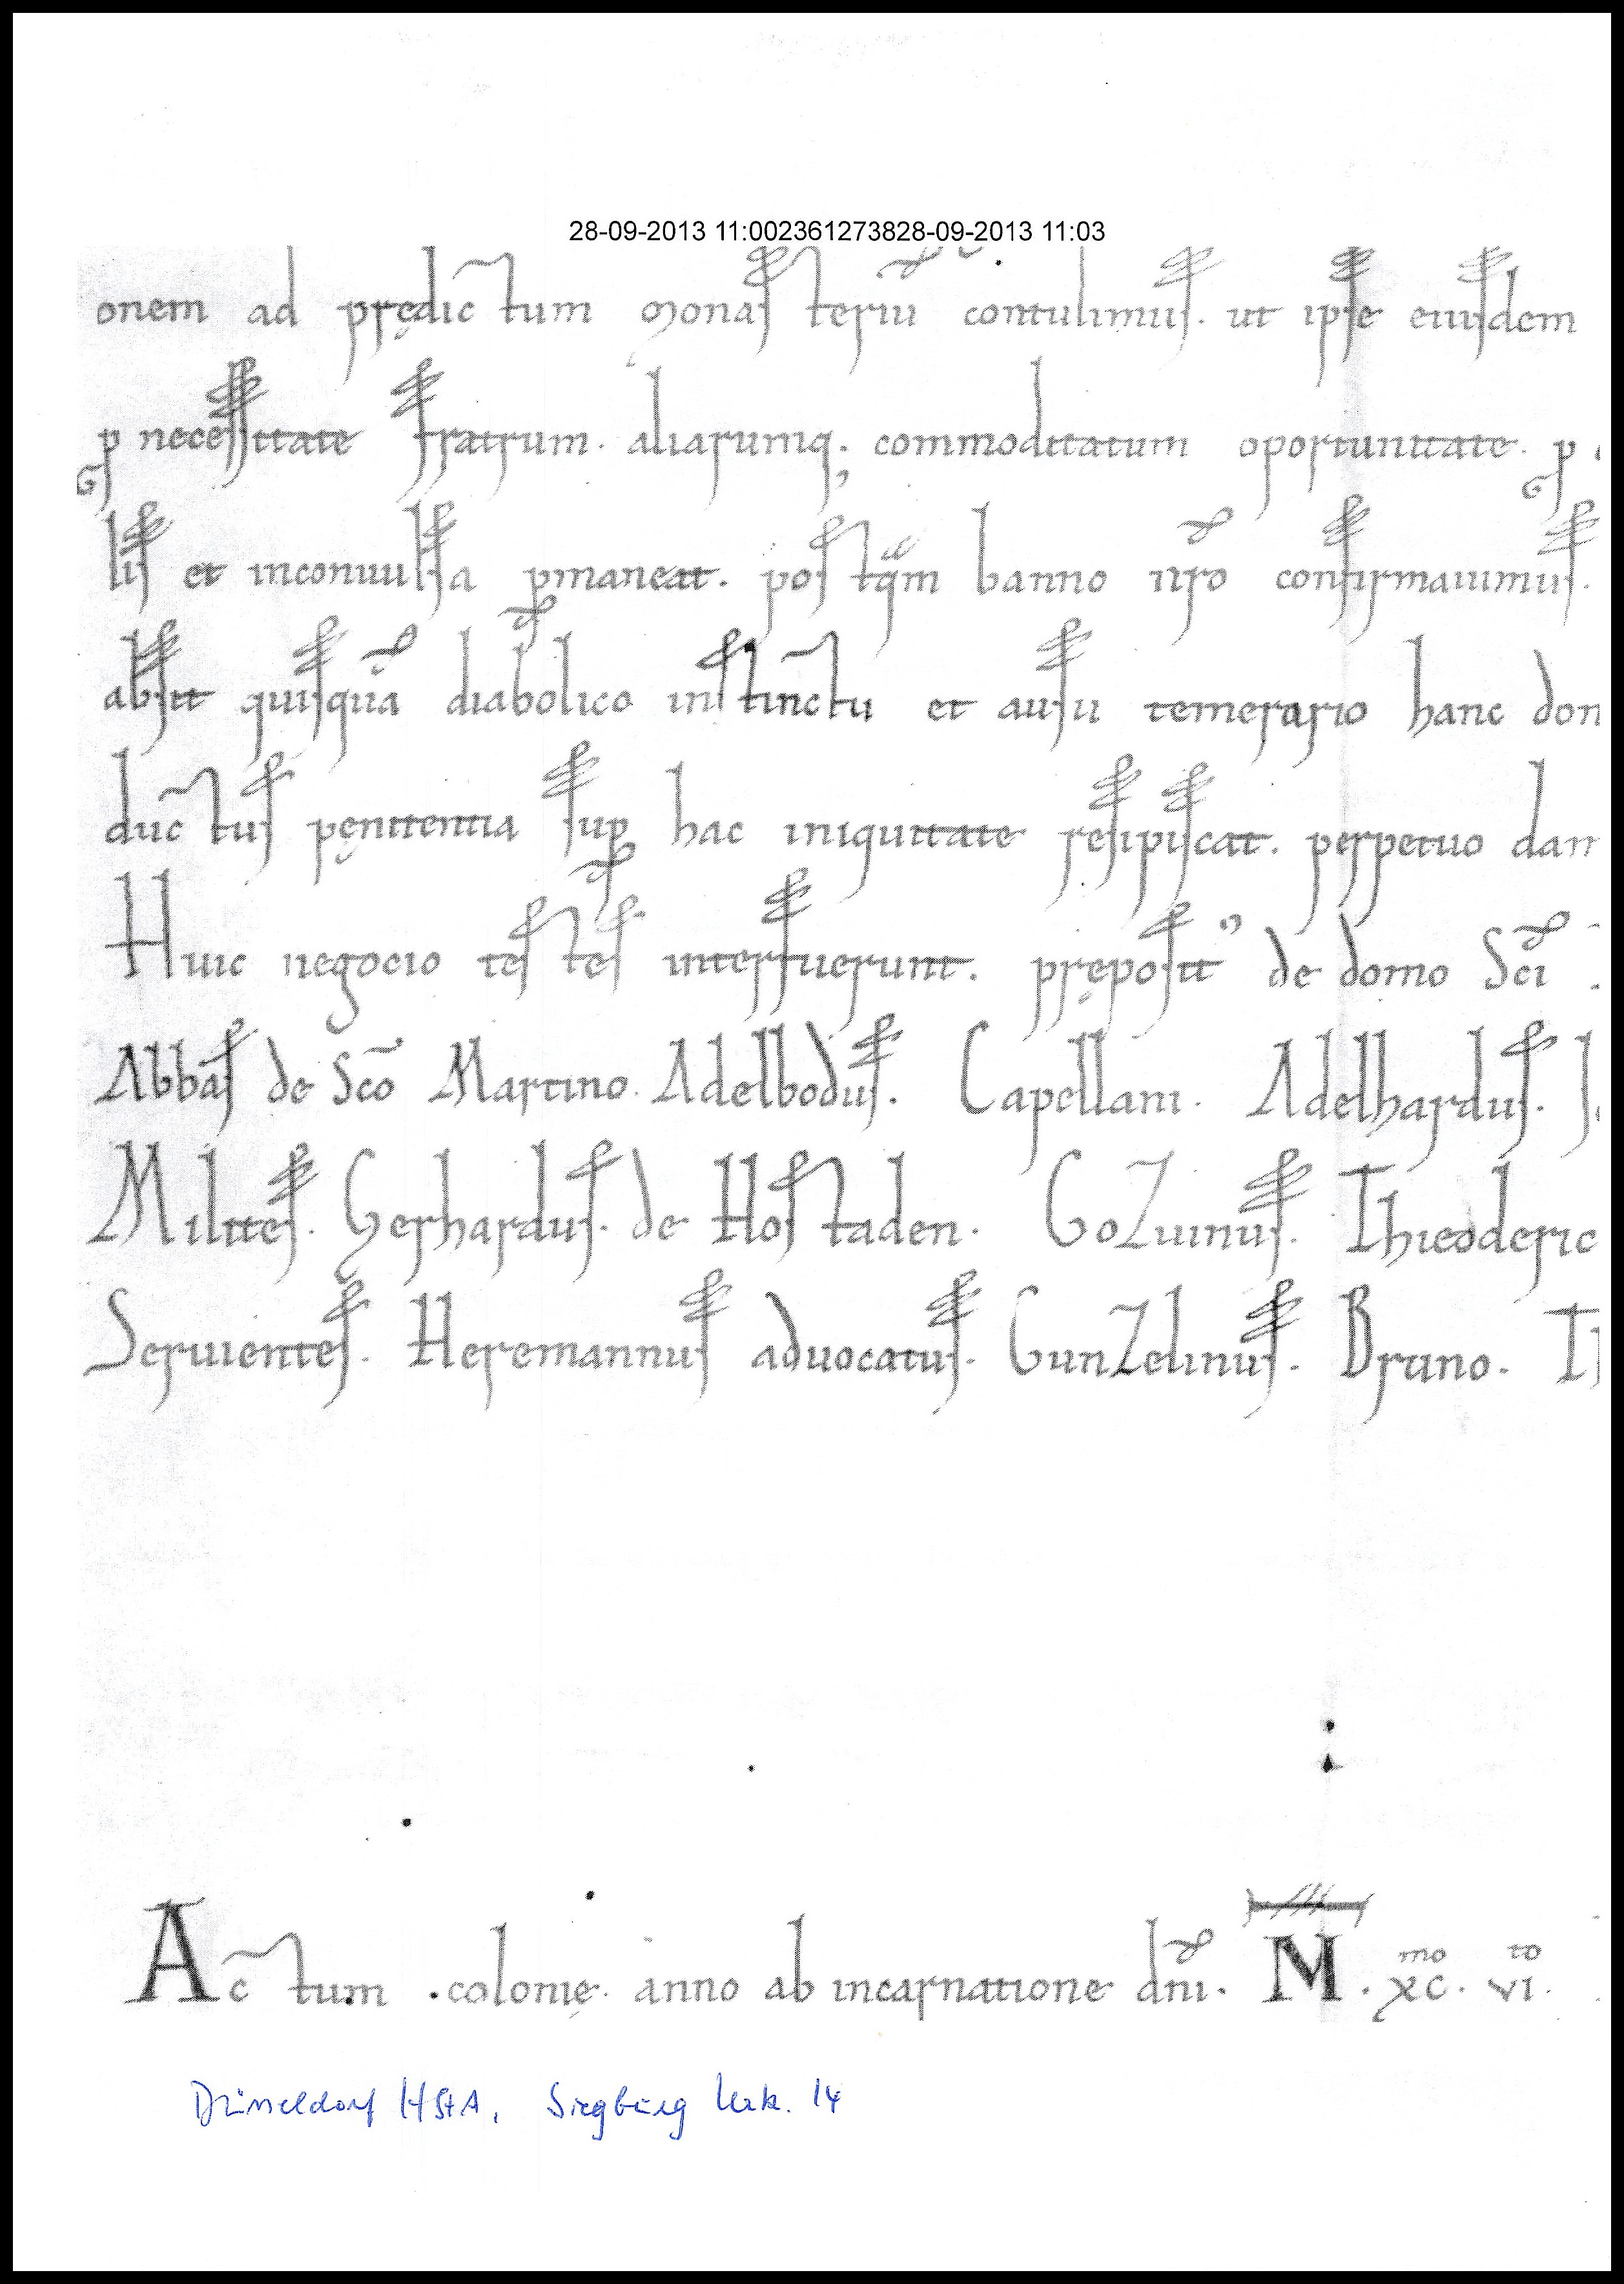 28-09-2013 11:002361273828-09-2013 11:03
onem ad prędictum monasteriū contulimus. ut ipse eiusdem
p necessitate fratrum. aliarumq; commoditatum oportunitate. p
lis et inconuulsa pmaneat. postqm banno nro confirmauimus.
absit quisquā diabolico instinctu et ausu temerario hanc don
ductus pęnitentia sup hac iniquitate resipiscat. perpetuo dam
Huic negocio testes interfuerunt. pręposit⁹ de domo Sci
Abbas de Sco Martino. Adelbodus. Capellani. Adelhardus.
Milites. Gerhardus. de Hostaden. GoZuinus. Thiedderic
Seruientes. Heremannus aduocatus. GunZelinus. Bruno.
Actum .colonię. anno ab incarnatione dni. M̄. xc.mo vi.to
Düsseldorf HStA, Siegburg Urk. 14